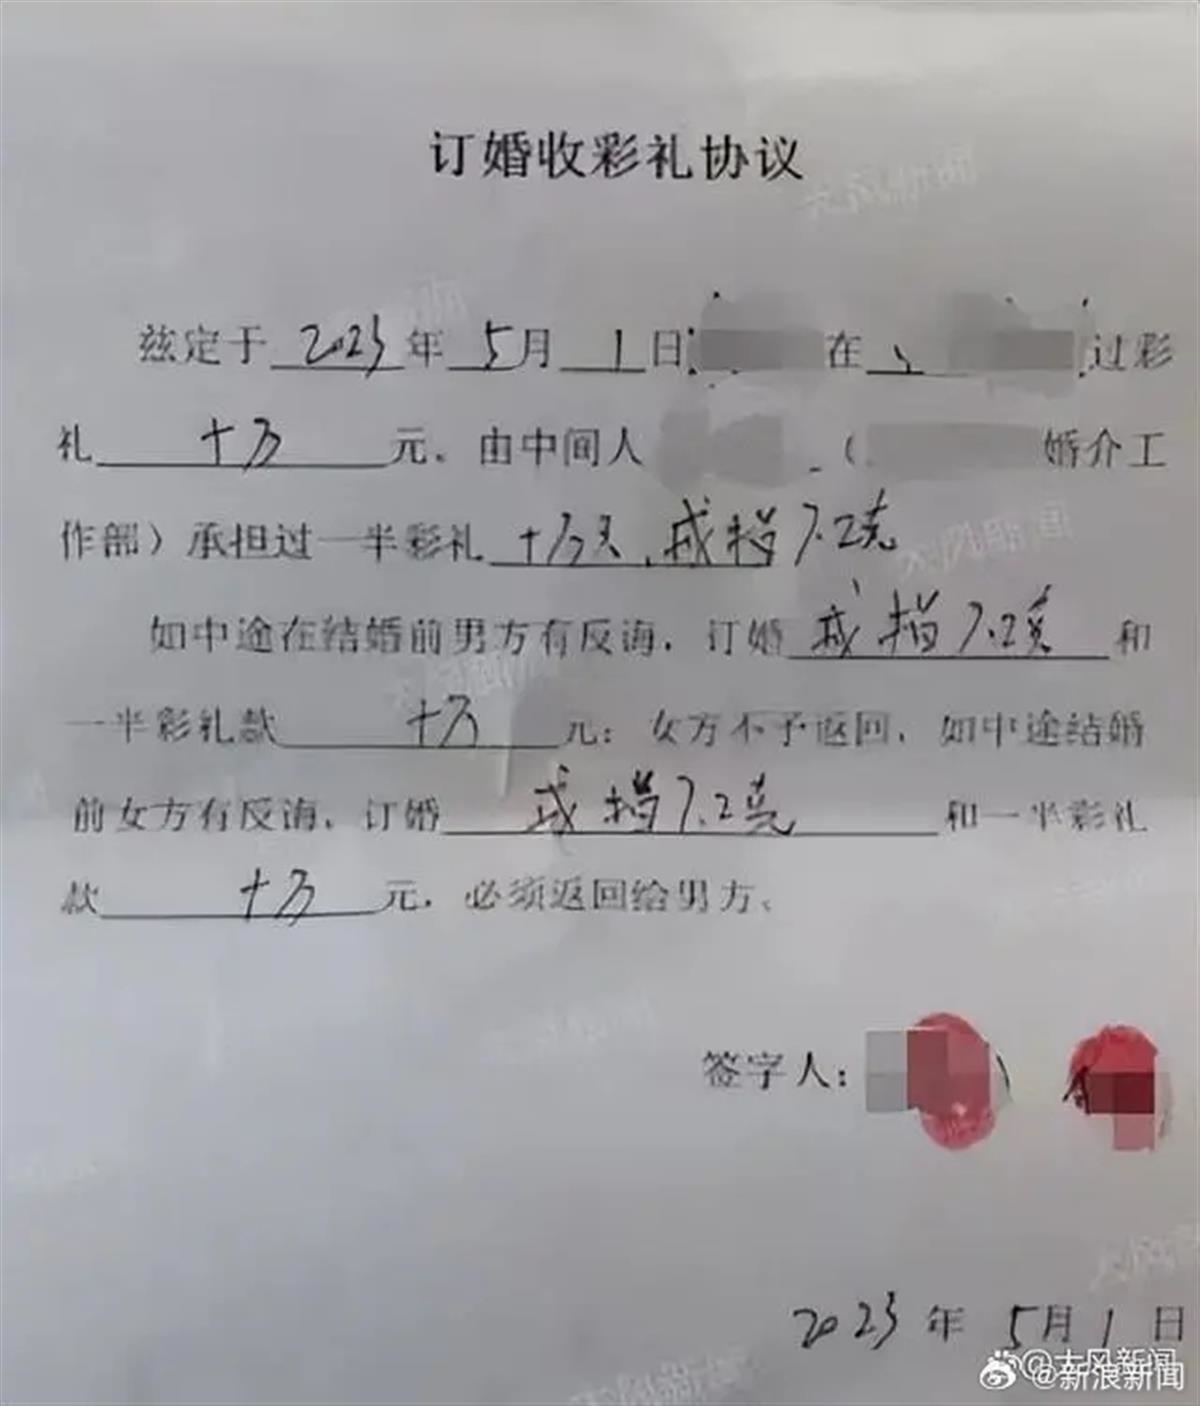 订婚收彩礼协议
兹定于 2023 年 5 月 1 日 在 过彩
礼 十万 元。由中间人 （ 婚介工
作部）承担过一半彩礼 十万元、戒指7.2克
如中途在结婚前男方有反海，订婚 戒指7.2克 和
一半彩礼款 十万 元；女方不予返回，如中途结婚
前女方有反海，订婚 戒指7.2克 和一半彩礼
款 十万 元，必须返回给男方。
签字人：
2023 年 5 月 1 日
@大风新闻
@新浪新闻